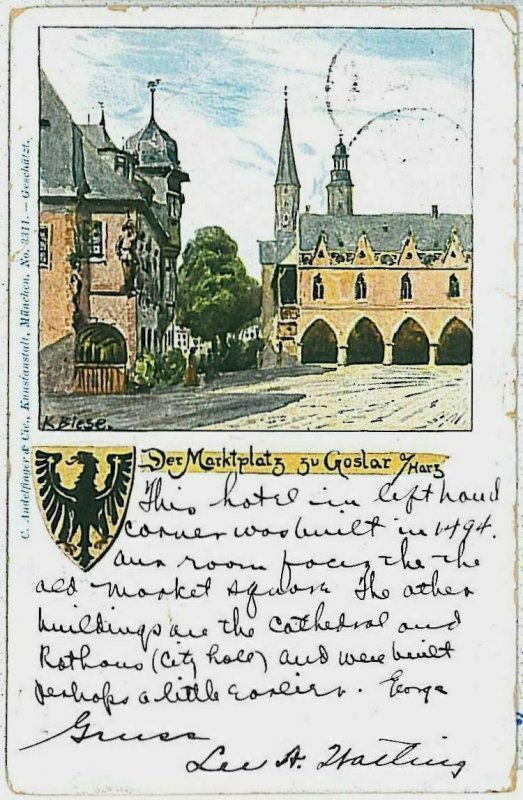 C. Andelfinger & Cie., Kunstanstalt, München. No. 3311. — Geschützt.
K Biese.
Der Marktplatz zu Goslar a/Harz
This hotel in left hand
corner was built in 1494.
Our room faces the the
old market square The other
buildings are the Cathedral and
Rathaus (City hall) and were built
perhaps a little earlier. George
Gruss
Lee A.